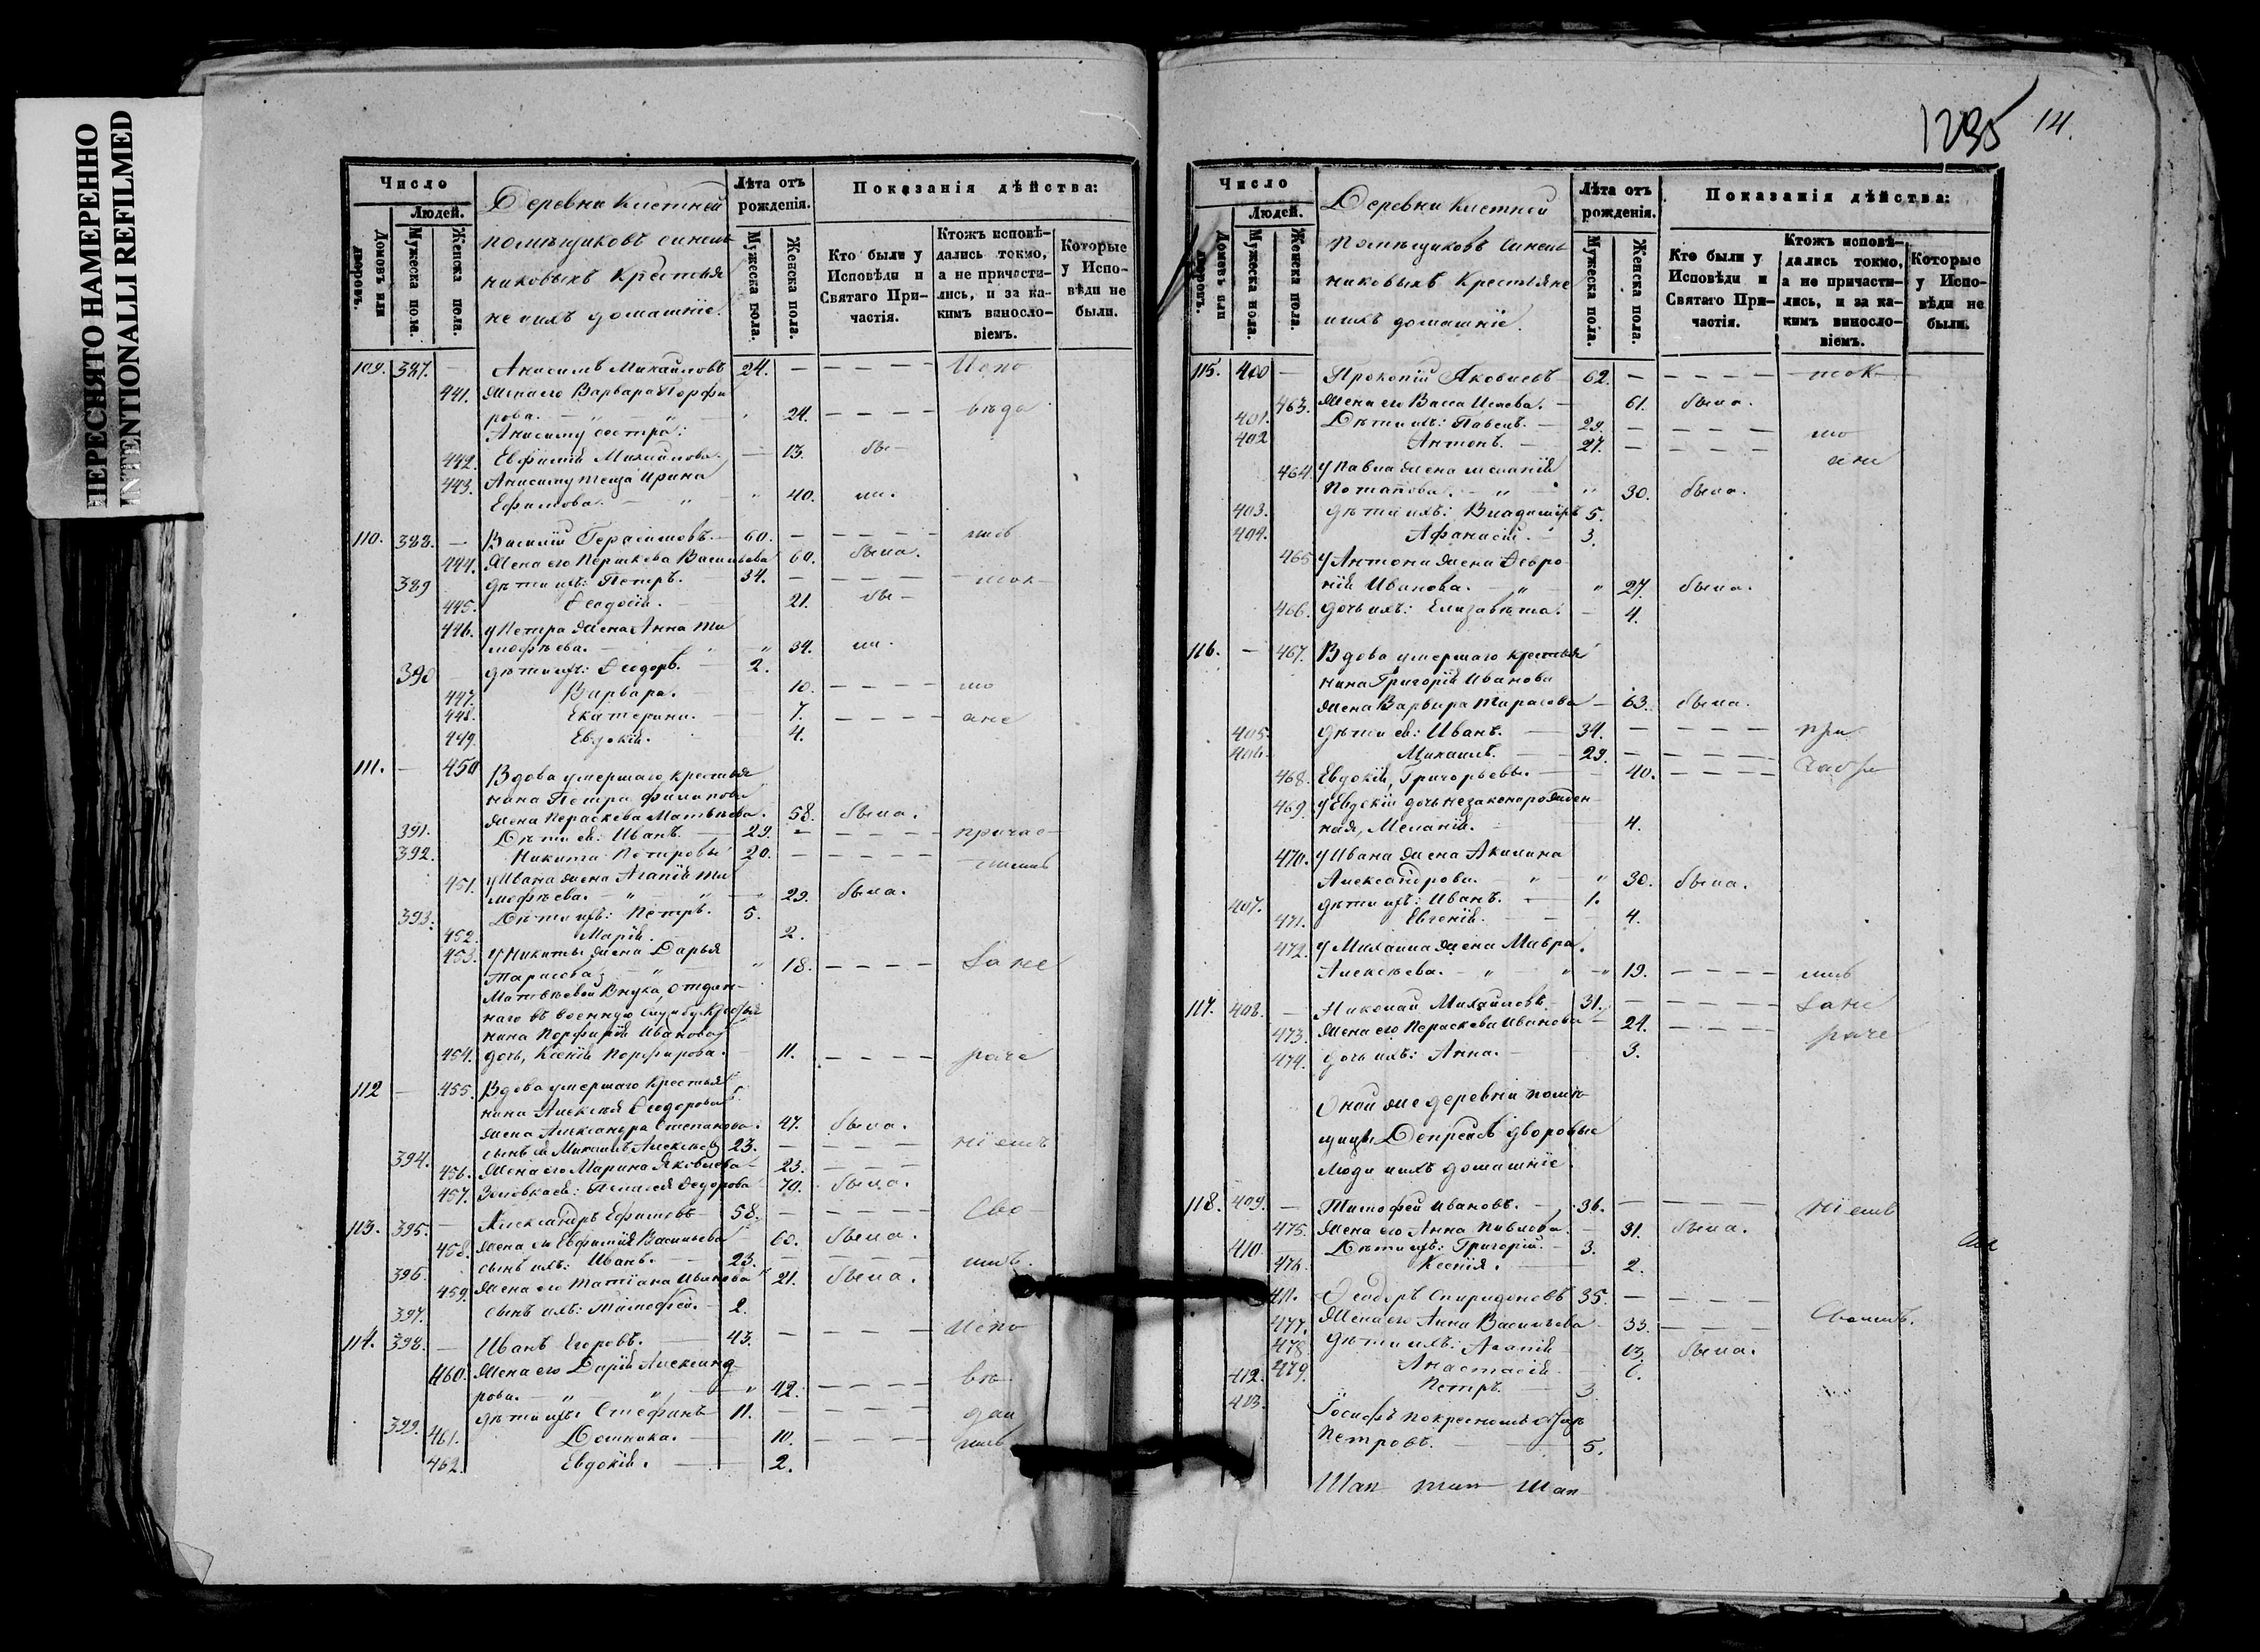 ПЕРЕСНЯТО НАМЕРЕННО
INTENTIONALLI REFILMED
Число
Людей.
Домовъ или дворовъ.
Мужеска пола.
Женска пола.
Деревни Клетней
помѣщиковъ Синель
никовыхъ Крестья
не ихъ домашніе.
Лѣта отъ рожденія.
Мужеска пола.
Женска пола.
Показанія дѣйства:
Кто были у Исповѣди и Святаго Причастія.
Ктожъ исповѣдались токмо, а не причастились, и за какимъ винословіемъ.
Которые у Исповѣди не были.
109. 387. — Анисимъ Михайловъ 24. — — — — Испо
441. Жена его Варвара Порфи
рова. — „ „ „ 24. — — — — вѣда
Анисиму сестра:
442. Евфимія Михайлова. — 13. бы
443. Анисиму теща Ирина
Ефимова. — „ „ 40. ли.
110. 388. — Василій Герасимовъ. — 60. — — — — лись
444. Жена его Параскева Васильева 60. была.
389 дѣти ихъ: Петръ. 34. — — — — ток
445. Ѳеодосія. 21. бы
446. у Петра жена Анна Ти
мофѣева. — „ „ 34. ли.
390 дѣти ихъ: Ѳеодоръ. — 2.
447. Варвара. 10. — — — — мо
448. Екатерина. — 7. — — — — ане
449. Евдокія. 4.
111. — 450 Вдова умершаго крестья
нина Петра Филипова
жена Параскева Матвѣева. 58. была.
391. Дѣти ея: Иванъ. — 29. — — — — причас
392. Никита Петровы 20. — — — — тились
451. у Ивана жена Агапія Ти
мофѣева. „ „ — „ 29. была.
393. Дѣти ихъ: Петръ. 5.
452. Марія. 2.
453. у Никиты жена Дарья
Тарасова „ „ 18. — — — — За не
Матвѣевой внука, отдан
наго въ военную службу Крестья
нина Порфирія Иванова
454. дочь, Ксенія Порфирова. 11. — — — — раче
112 — 455. Вдова умершаго Крестья
нина Алексѣя Ѳеодорова
жена Александра Степанова. 47. была.
394. сынъ ея Михаилъ Алексѣев 23. — — — ніемъ
456. Жена его Марина Яковлева 23. — — —
457. Золовка ея: Пелагея Ѳедорова 70. была.
113. 395. — Александръ Ефимовъ 58. — — — — Сво
458. Жена его Евфимія Васильева 60. была.
396. сынъ ихъ: Иванъ. — 23. — — — имъ.
459. Жена его Татіана Иванова 21. была.
397. сынъ ихъ: Тимофей. — 2.
114. 398. — Иванъ Егоровъ. — 43. — — — — Испо
460. Жена его Дарія Александ
рова. — „ „ — „ 42. — — — — вѣ
399. дѣти ихъ: Стефанъ 11. — — — — дал
461. Домника. 10. — — — — ись
462. Евдокія. — 2.
1235 14.
Число
Людей.
Домовъ или дворовъ.
Мужеска пола.
Женска пола.
Деревни Клетней
Помѣщиковъ Синель
никовыхъ Крестьяне
ихъ домашніе.
Лѣта отъ рожденія.
Мужеска пола.
Женска пола.
Показанія дѣйства:
Кто были у Исповѣди и Святаго Причастія.
Ктожъ исповѣдались токмо, а не причастились, и за какимъ винословіемъ.
Которые у Исповѣди не были.
115. 400 — Прокопій Яковлевъ 62. — — — — ток
463. Жена его Васса Исаева. — 61. была.
401. Дѣти ихъ: Павелъ. — 29. — — — — мо
402 Антонъ. — 27. — — — — а не
464 у Павла жена Меланія
Потапова. — „ „ 30. была.
403. дѣти ихъ: Владиміръ 5.
404. Афанасій. — 3.
465 у Антона жена Февро
нія Иванова. — „ „ 27. была.
466. дочь ихъ: Елизавета. — 4.
116. — 467. Вдова умершаго крестья
нина Григорія Иванова
жена Варвара Тарасова — 63. была.
405. Дѣти ея: Иванъ. — 34. — — — — при
406. Михаилъ. — 29. — — — —
468. Евдокія, Григорьевы. — 40. — — — —
469. у Евдокіи дочь незаконорожден
ная, Меланія. 4.
470. у Ивана жена Акилина
Александрова. — „ „ 30. была.
407. дѣти ихъ: Иванъ. — 1.
471. Евгенія. — 4.
472. у Михаила жена Мавра
Алексѣева. — „ „ „ 19. — — — — лись
117. 408. — Николай Михайловъ 31. — — — — За не
473. Жена его Параскева Иванова 24. — — — — раче
474. дочь ихъ: Анна. 3.
Оной же деревни помѣ
щицы Депрейсъ дворовые
люди ихъ домашніе.
118. 409. — Тимофей Ивановъ. — 36. — — — ніемъ
475. Жена его Анна Павлова. 31. была.
410. Дѣти ихъ: Григорій. — 3.
476. Ксенія. — 2.
411. Ѳеодоръ Спиридоновъ 35. — — — —
477. Жена его Анна Васильева 33. — — — — Своимъ.
478 дѣти ихъ: Агапія 13. была.
479. Анастасія 6.
412. Петръ. — 3.
413. Іосифъ по крестномъ отцѣ
Петровъ. — 5.